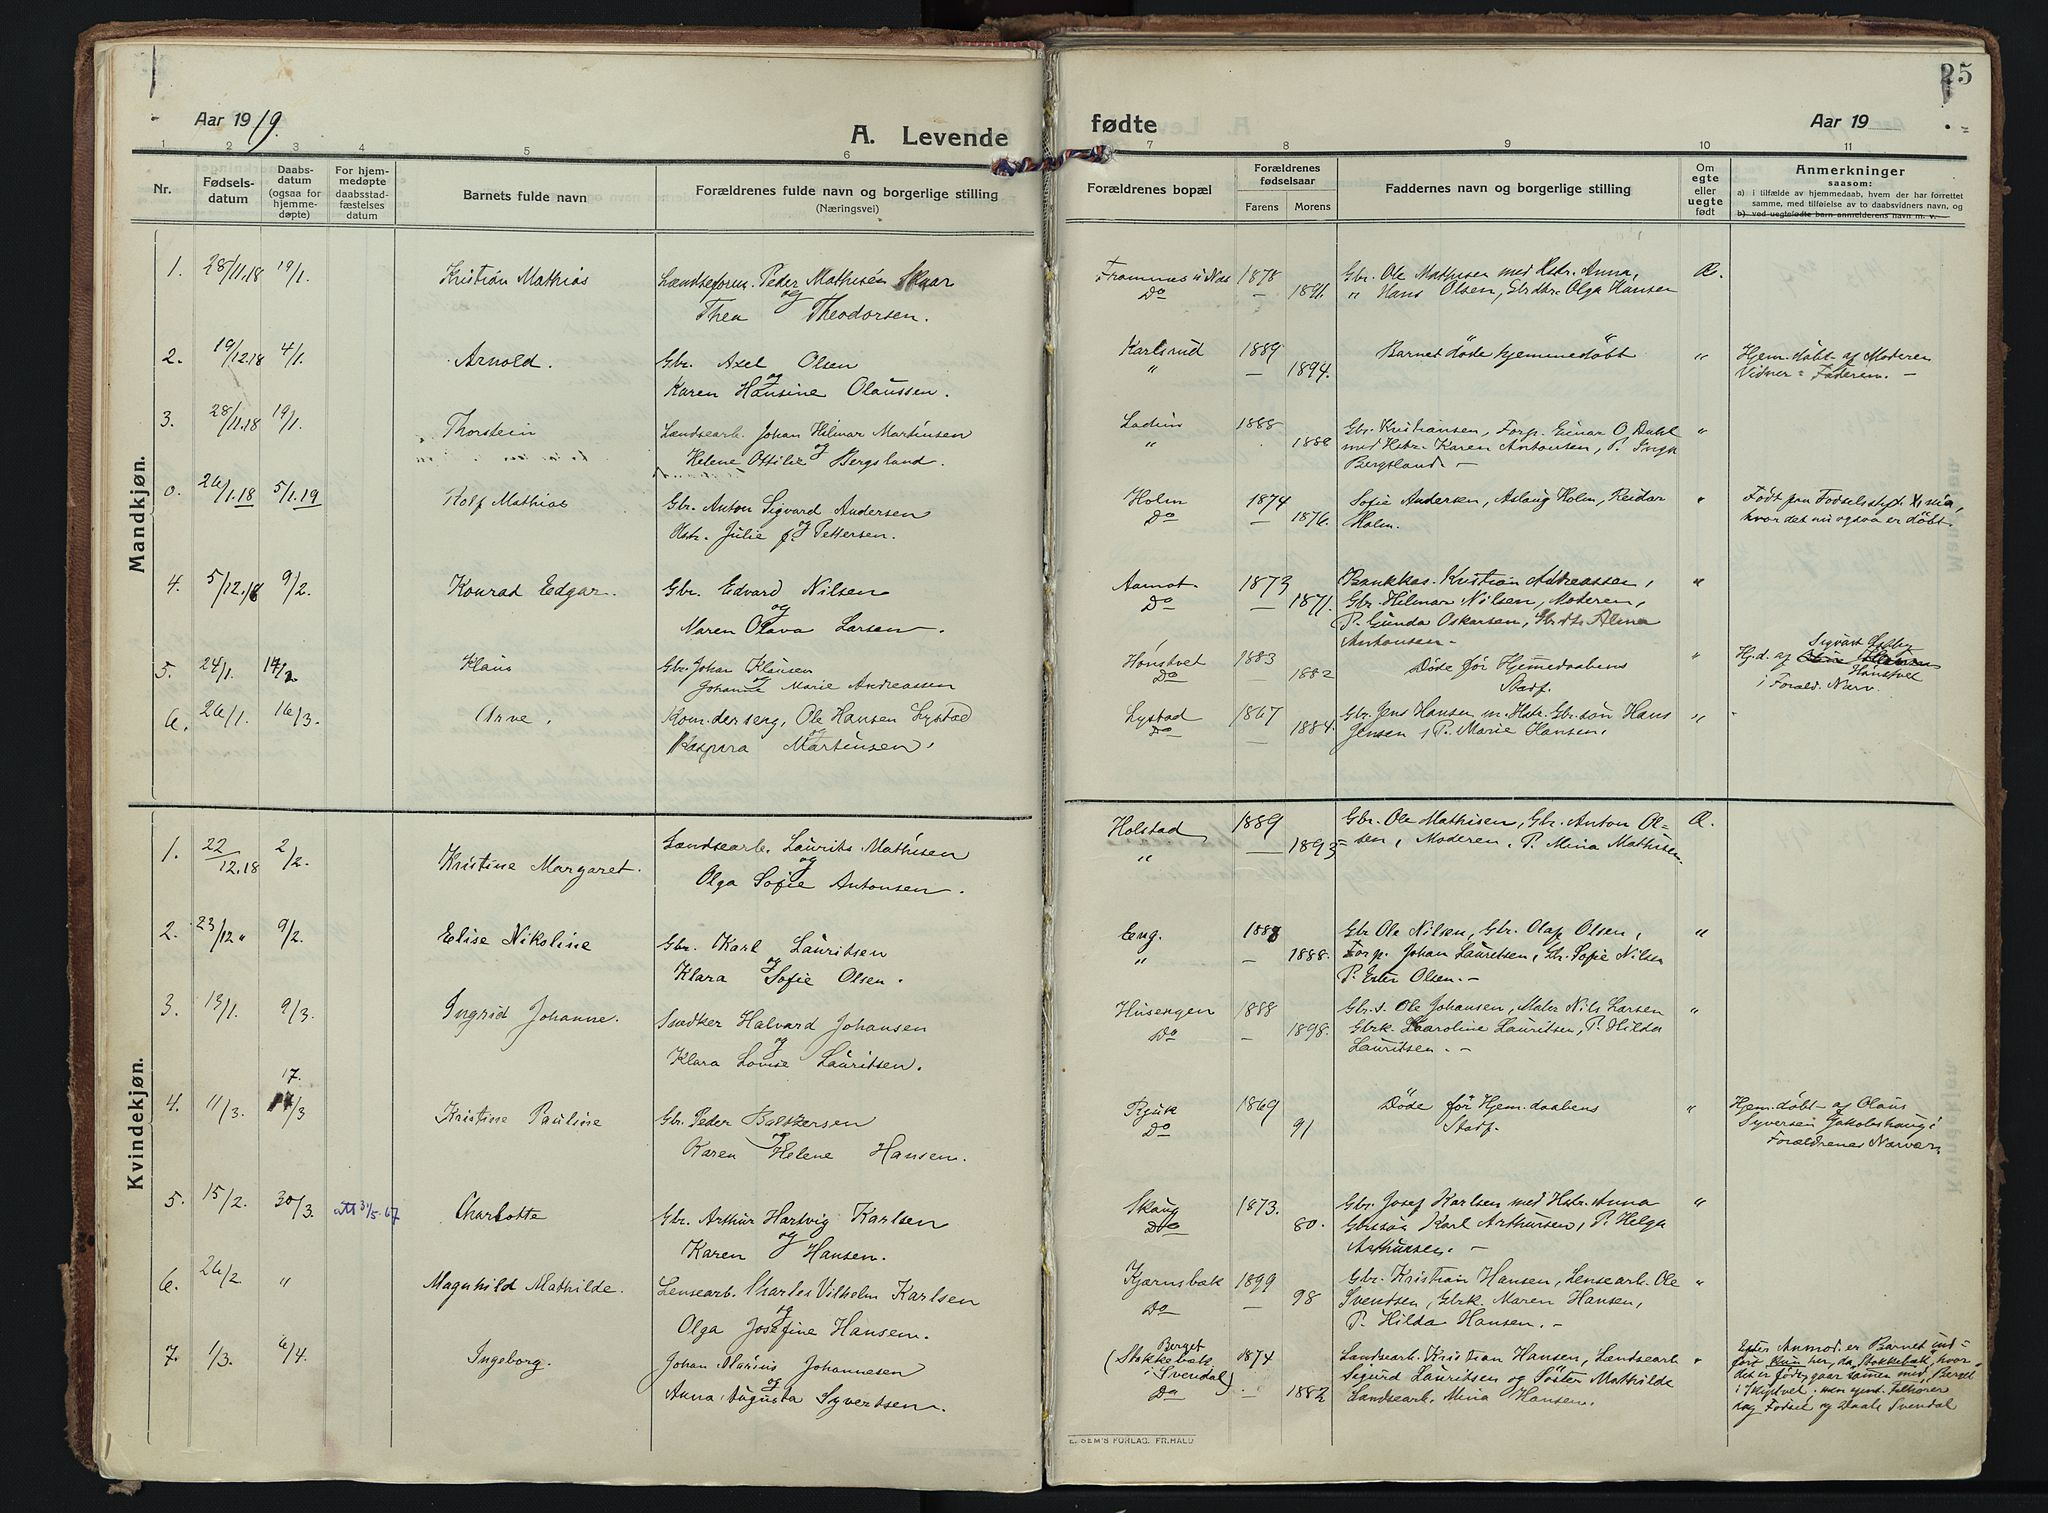 25
Aar 1919.
A. Levende
fødte
Aar 19
1 2 3 4 5 6 7 8 9 10 11
Nr.
Fødsels-
datum
Daabs-
datum
(ogsaa for
hjemme-
døpte)
For hjem-
medøpte
daabsstad-
fæstelses
datum
Barnets fulde navn
Forældrenes fulde navn og borgerlige stilling
(Næringsvei)
Forældrenes bopæl
Forældrenes
fødselsaar
Farens Morens
Faddernes navn og borgerlige stilling
Om
egte
eller
uegte
født
Anmerkninger
saasom:
a) i tilfælde av hjemmedaab, hvem der har forrettet
samme, med tilføielse av to daabsvidners navn, og
b) ved uegtefødte barn anmelderens navn m. v.
Mandkjøn.
1. 28/11.18 19/1. Kristian Mathias
Peder Mathisen Skaar
og
Thea Theodorsen.
1878
Do — 1891.
Gbr. Ole Mathisen med Hstr. Anna,
" Hans Olsen, Gbrdtr. Olga Hansen
Æ.
2. 19/12.18 4/1. Arnold.
Gbr. Axel Olsen
og
Karen Hansine Olaussen.
Karlsrud 1889
" — 1894.
Barnet døde hjemmedøbt "
Hjem.døbt af Moderen
Vidner = Faderen. —
3. 28/11.18 19/1. Thorstein
Landsearb. Johan Hilmar Martinsen
og
Helene Ottilie Bergsland.
1888
" 1888
Gbr. Kristiansen, Forp. Einar O Dahl "
med Hstr. Karen Antonsen, P. Inga
Bergsland. —
0. 26/1.18 5/1.19 Rolf Mathias
Gbr. Anton Sigvard Andersen
Hstr. Julie f. Pettersen.
Holm 1874
Do — 1876.
Sofie Andersen, Aslaug Holm, Reidar "
Holm.
Født paa Fødselsst.
hvor det nu ogsaa er døbt.
4. 5/12.18 9/2. Konrad Edgar.
Gbr. Edvard Nilsen
og
Maren Olava Larsen.
Aamot. 1873
Do — 1871.
Bankkas. Kristian Andreassen, "
Gbr. Hilmar Nilsen, Moderen,
P. Gunda Oskarsen, Gbrdtr. Alma
Antonsen. —
5. 24/1. 14/2 Klaus
Gbr. Johan Klausen
og
Johanne Marie Andreassen
Hønstvet 1883
Do 1882
Døde før Hjemedaabens "
Stadf.
Hj.d. af Sigvart
Hønstvet
i Forald. Nærv.
6. 26/1. 16/3. Arne.
Ole Hansen Lystad
og
Kaspara Martinsen.
Lystad 1867
Do — 1884.
Gbr. Jens Hansen m. Hstr. Gbrsøn Hans "
Jensen, P. Marie Hansen.
Kvindekjøn.
1. 22/12.18 2/2. Kristine Margaret.
Landsearb. Laurits Mathisen
og
Olga Sofie Antonsen.
Holstad 1889
" — 1893
Gbr. Ole Mathisen, Gbr. Anton Ol= Æ.
=sen, Moderen, P. Mina Mathisen
2. 23/12 " 9/2. Elise Nikoline
Gbr. Karl Lauritsen
og
Klara Sofie Olsen.
Eng. 1888
" — 1888.
Gbr Ole Nilsen, Gbr. Olaf Olsen, "
Forp. Johan Lauritsen, Hstr. Sofie Nilsen
P. Ester Olsen. —
3. 13/1. 9/3. Ingrid Johanne.
Snedker Halvard Johansen
og
Klara Lovise Lauritsen.
Husengen 1888
Do — 1898.
Gbr.s. Ole Johansen, Maler Nils Larsen "
Gbrk. Karoline Lauritsen, P. Hilda
Lauritsen. —
4. 11/3. 17./3 Kristine Pauline
Gbr. Peder Baltzersen
og
Karen Helene Hansen.
1869
Do 91
Døde før Hjem.daabens "
Stadf.
Hjem.døbt af Olaus
Syversen Jakobshaug i
Foraldrenes Nærvær
5. 15/2. 30/3. att 31/5.67 Charlotte
Gbr. Arthur Hartvig Karlsen
og
Karen Hansen.
Skaug 1873.
Do 80.
Gbr. Josef Karlsen med Hstr. Anna "
Gbrssøn Karl Arthursen, P. Helga
Arthursen. —
6. 26/2 " Magnhild Mathilde.
Lensearb. Charles Vilhelm Karlsen
og
Olga Josefine Hansen.
Kjærnsbæk 1899
Do — 98
Gbr. Kristian Hansen, Lensearb. Ole "
Svendsen, Gbrk. Maren Hansen,
P. Hilda Hansen. —
7. 1/3. 6/4. Ingeborg.
Johan Marius Johannesen
og
Anna Augusta Syvertsen.
Berget
(Stokkebæk
i Svendal) 1874
Do 1882
Landsearb. Kristian Hansen, Landsearb. "
Sigurd Lauritsen og Søster Mathilde
Landsearb. Mina Hansen.
Efter Anmod. er Barnet ind=
ført her, da Stokkebæk, hvor
det er født, gaar sammen med Berget
i Skiptvet, men
Fødsel og Daab Svendal
E. SEM'S FORLAG. FR.HALD